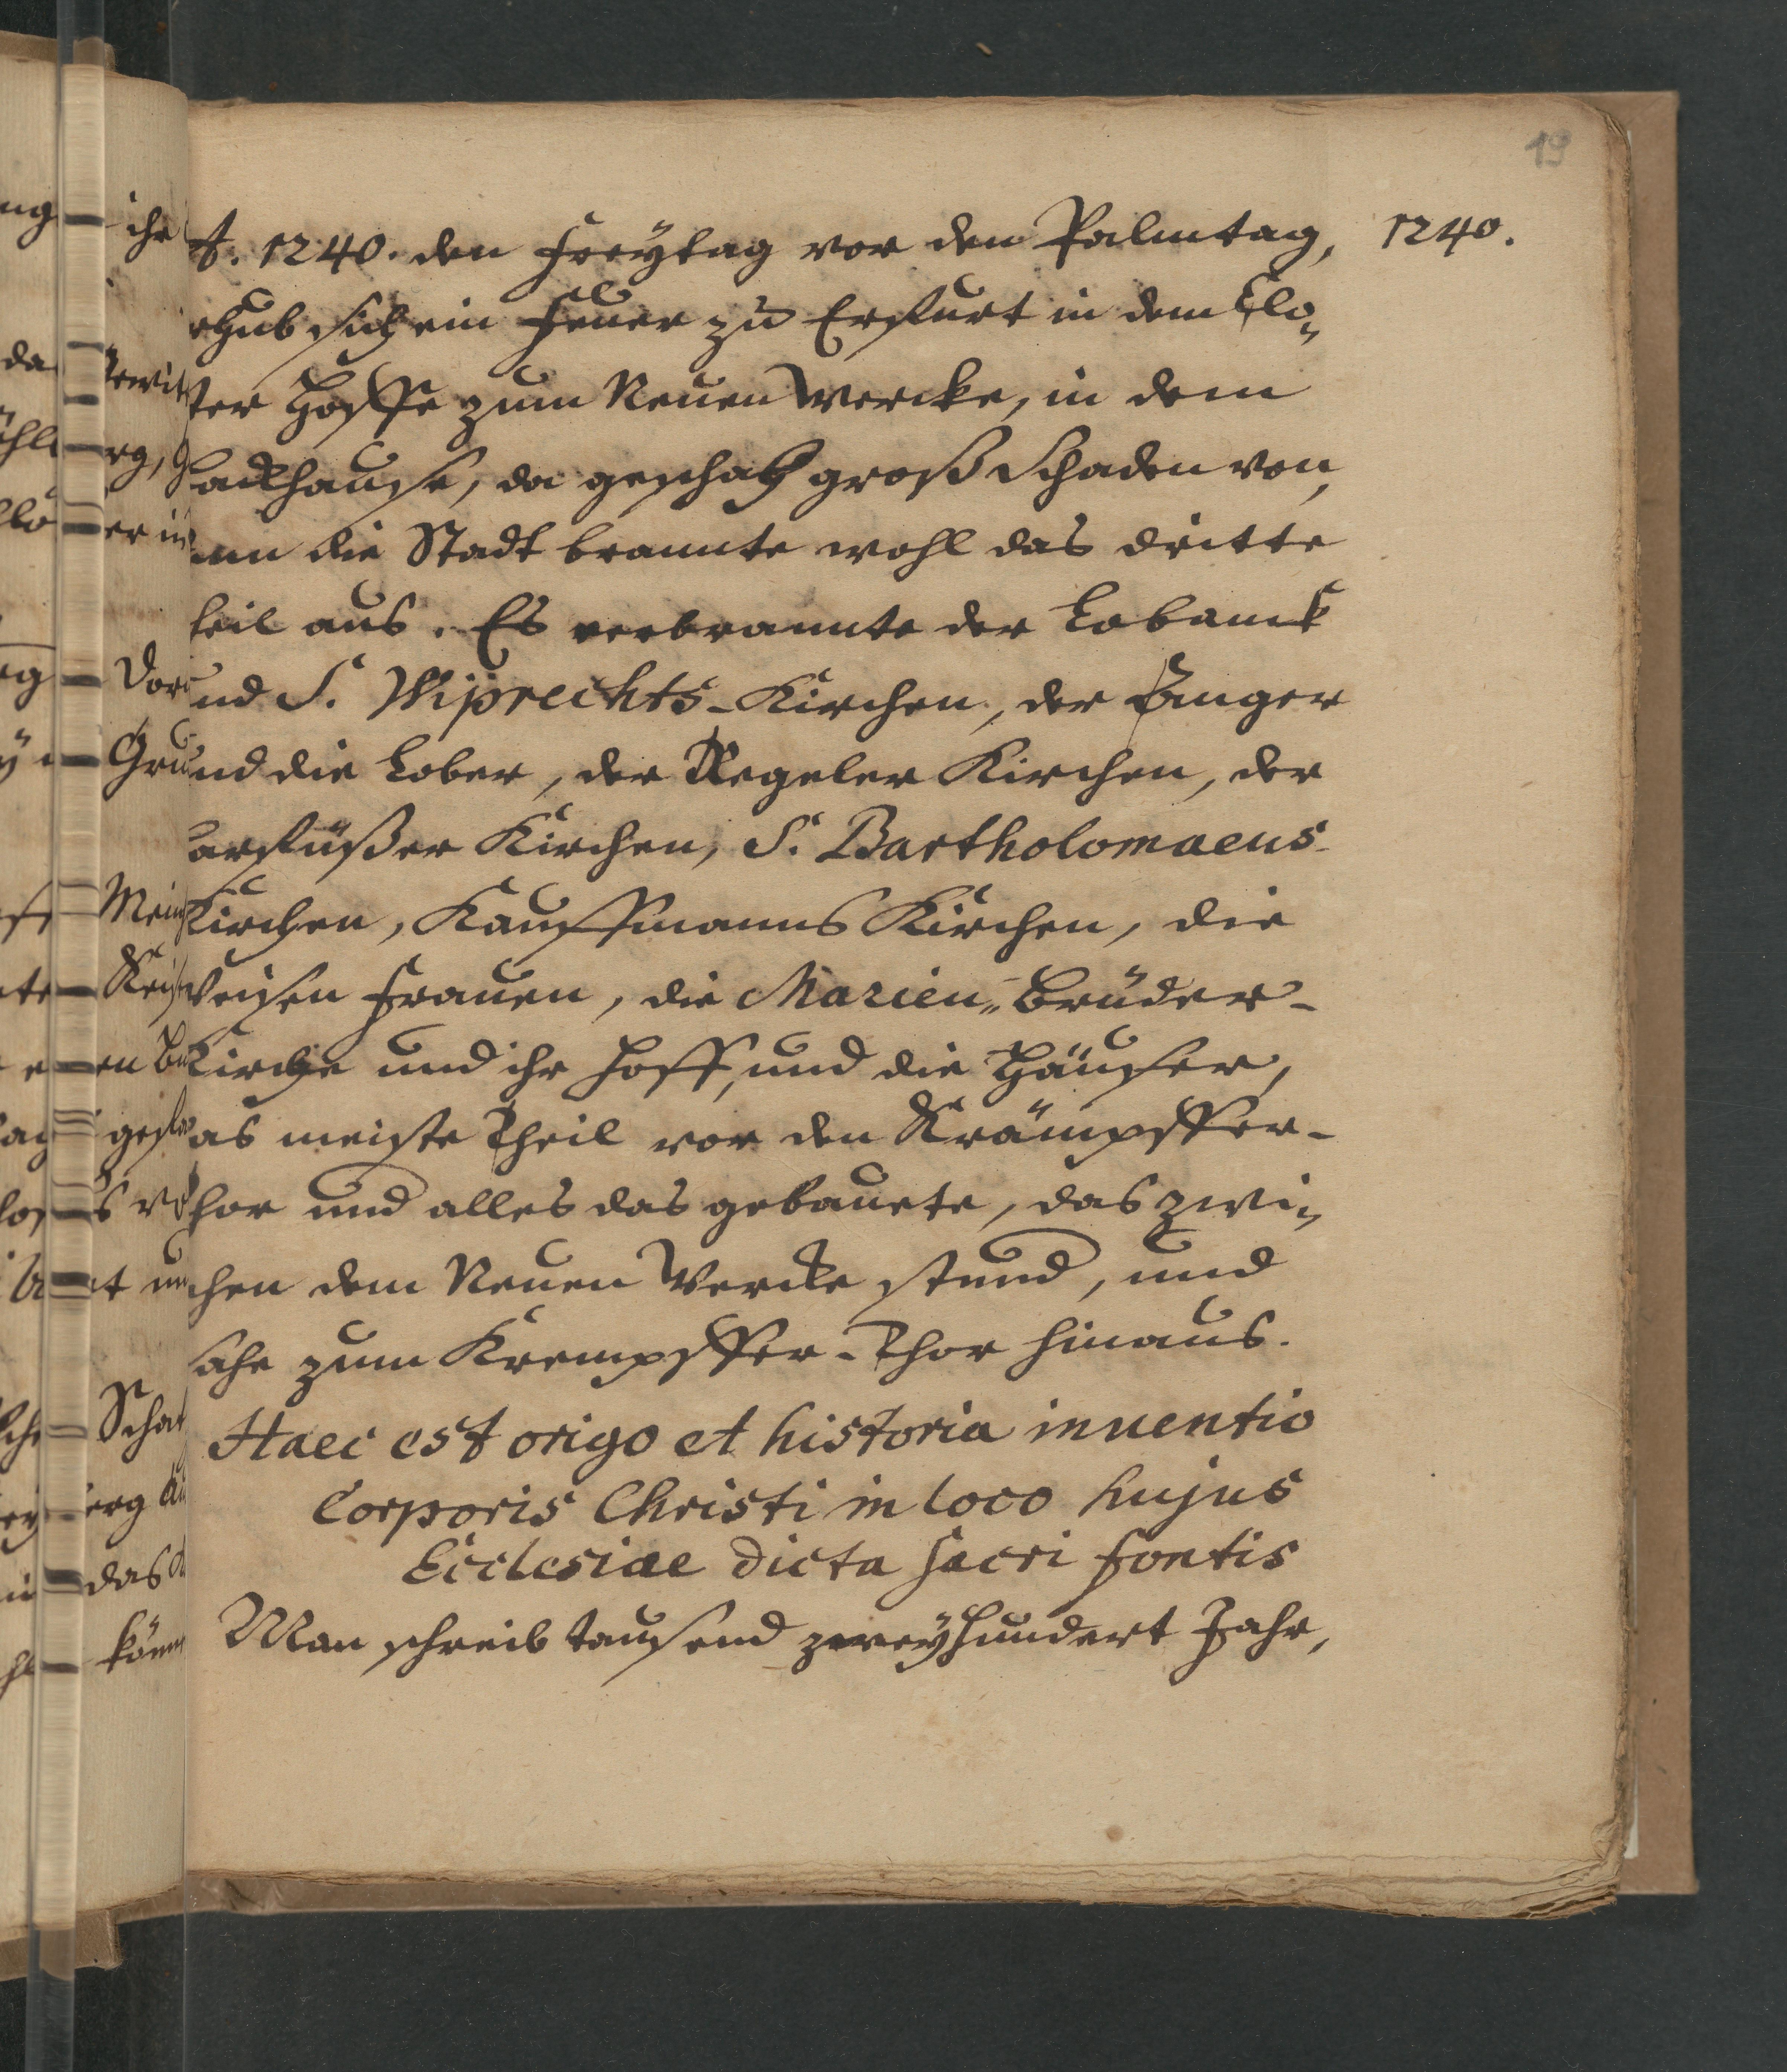 19
A. 1240. den Freÿtag vor den Palmtag, 1240.
erhub sich ein Feuer zu Erffurt in dem Clo„
ster Hoffe zum Neuen Wercke, in dem
Backhause, da geschah groß Schaden von,
denn die Stadt brannte wohl das dritte
teil aus. Es verbrannte der Lobanck
und S. Wiprechts-Kirchen, der Anger
und die Lober, der Regeler Kirchen, der
Barfüßer Kirchen, S. Bartholomaeus-
Kirchen, Kauffmanns Kirchen, die
Weisen Frauen, die Marien„Brüder-
Kirche und ihr Hoff, und die Häuser,
das meiste Theil vor den Krämpffer-
thor und alles das gebauete, das zwi„
schen dem Neuen Wercke stund, und
sahe zum Krempffer-Thor hinaus.
Haec est origo et historia inuentio
Corporis Christi in loco hujus
Ecclesiae dicta sacri fontis
Man schreib tausend zweÿhundert Jahr,